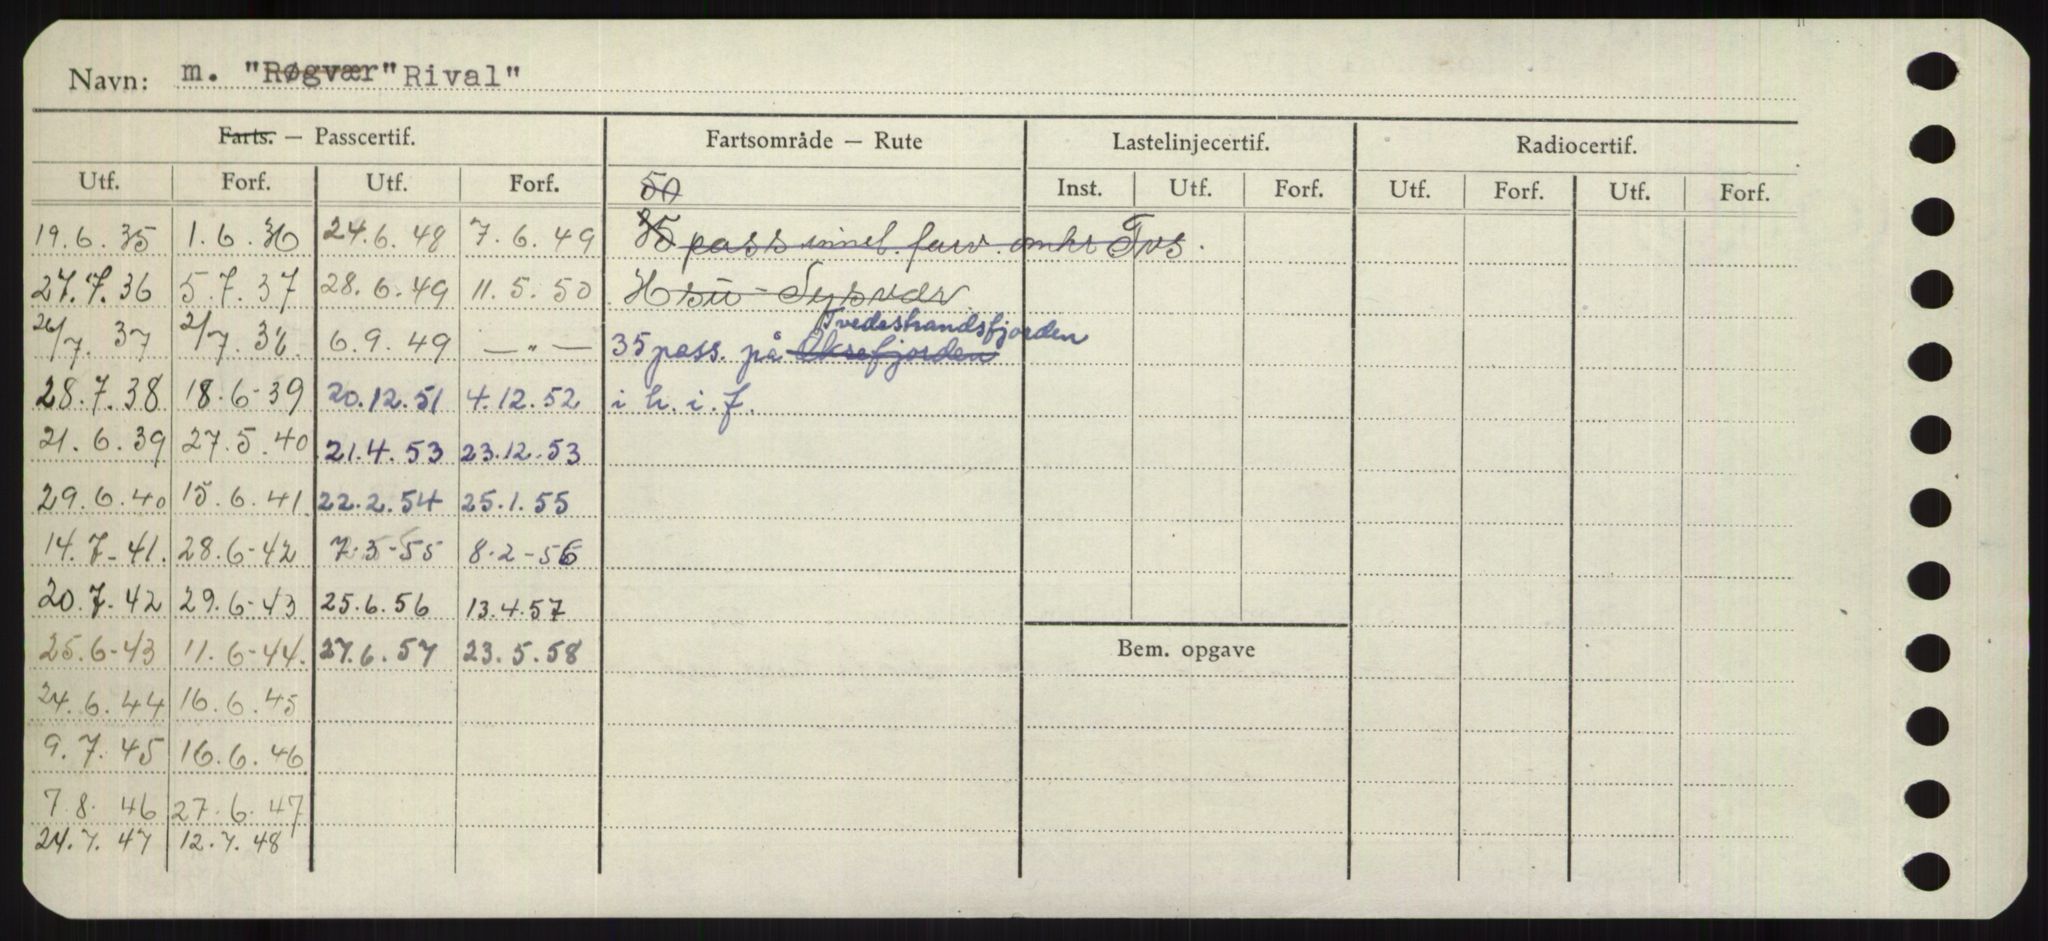 Navn: m. "Røgvær" "Rival"
Farts. — Passcertif. Fartsområde — Rute Lastelinjecertif. Radiocertif.
Utf. Forf. Utf. Forf. 50 Inst. Utf. Forf. Utf. Forf. Utf. Forf.
19.6.35 1.6.36 24.6.48 7.6.49 35 pass innel. farv. omkr Tvs.
27.7.36 5.7.37 28.6.49 11.5.50 Hsu - Sysvær
Tvedestrandsfjorden
26/7. 37 2/7. 38. 6.9.49 — " — 35 pass. på Oksefjorden
28.7.38 18.6-39 20.12.51 4.12.52 i h. i. f.
21.6.39 27.5.40 21.4.53 23.12.53
29.6.40 15.6.41. 22.2.54 25.1.55
14.7-41. 28.6-42 7.3-55 8.2-56
20.7-42 29.6-43 25.6.56 13.4.57
25.6-43 11.6-44. 27.6.57 23.5.58 Bem. opgave
24.6.44 16.6.45
9.7.45 16.6.46
7.8.46 27.6.47
24.7.47 12.7.48